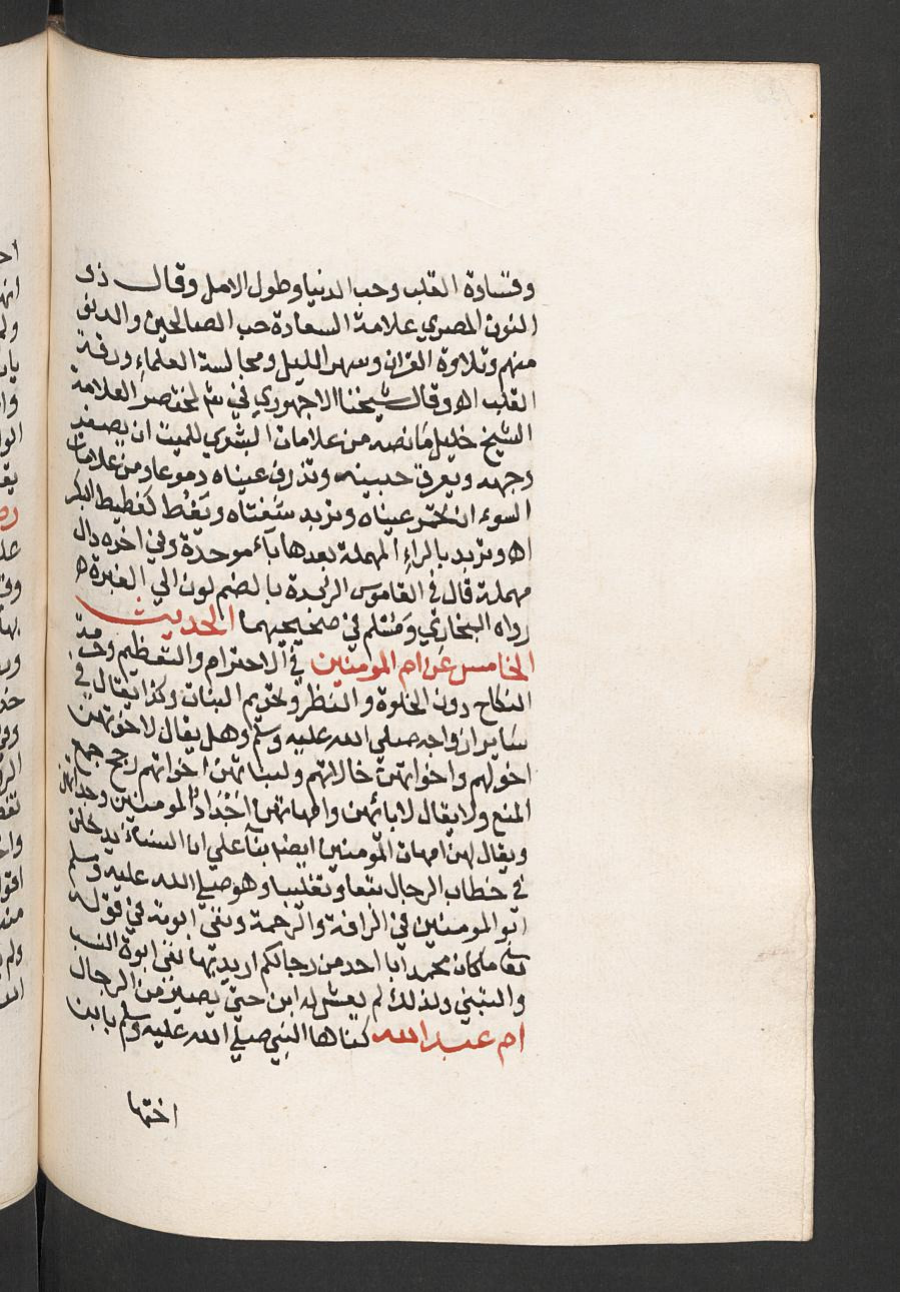 وقساوة القلب وحب الدنيا وطول الامل وقال ذى
النون المصري علامة السعادة حب الصالحين والدنو
منهم وتلاوة القران وسهر الليل ومجالسة العلماء ورقة
القلب اه وقال شيخنا الاجهوري في ش لمختصر العلامة
الشيخ خليل مانصه من علامات البشري للميت ان يصفر
وجهه ويعرق جبينه وتذرف عيناه دموعا ومن علامات
السوء ان تحمر عيناه وتربد شفتاه ويغط كغطيط البكر
اه وتربد بالراء المهملة بعدها باء موحدة وفي اخره دال
مهملة قال في القاموس الربدة بالضم لون الي الغبرة اه
رواه البخاري ومسلم في صحيحيهما الحديث
الخامس عن ام المومنين في الاحترام والتعظيم وحرمة
النكاح دون الخلوة والنظر وتحريم البنات وكذا يقال في
ساير ازواجه صلي الله عليه وسلم وهل يقال لاخوتهن
اخوالهم واخواتهن خالاتهم ولبناتهن اخواتهم رجح جمع
المنع ولا يقال لابائهن وامهاتهن اجداد المومنين وجداتهم
ويقال لهن امهات المومنين ايضا بناء علي ان النساء يدخلن
في خطاب الرجال تبعا وتغليبا وهو صلي الله عليه وسلم
ابو المومنين في الرافة والرحمة ونفي ابوته في قوله
تعا ما كان محمد ابا احد من رجالكم اريد بها نفي ابوة النسب
والتبني ولذلك لم يعش له ابن حتي يصير من الرجال
ام عبد الله كناها النبي صلي الله عليه وسلم بابن
اختها